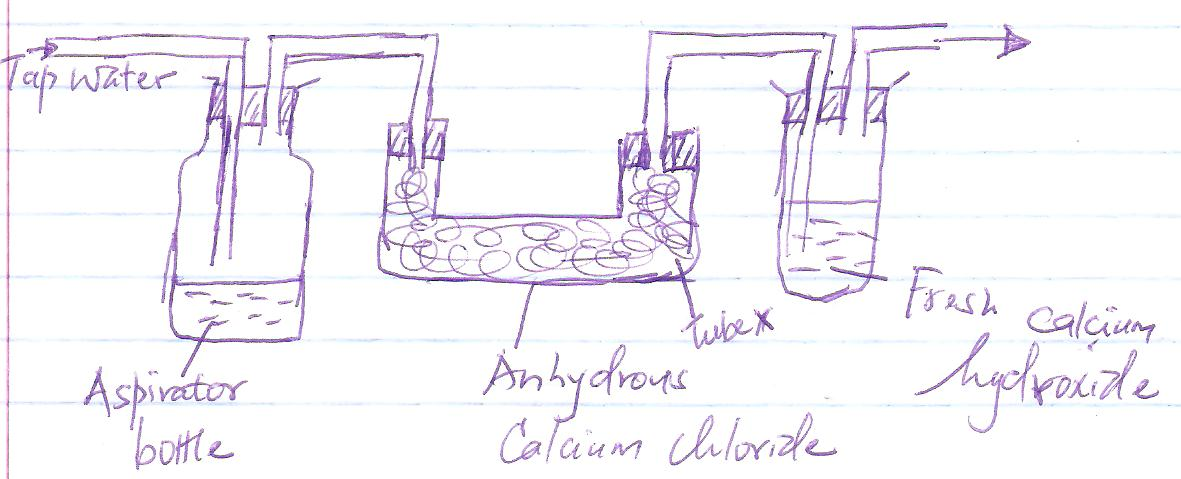 Tap water
Aspirator
bottle
Anhydrous
Calcium chloride
tube X
Fresh calcium
hydroxide